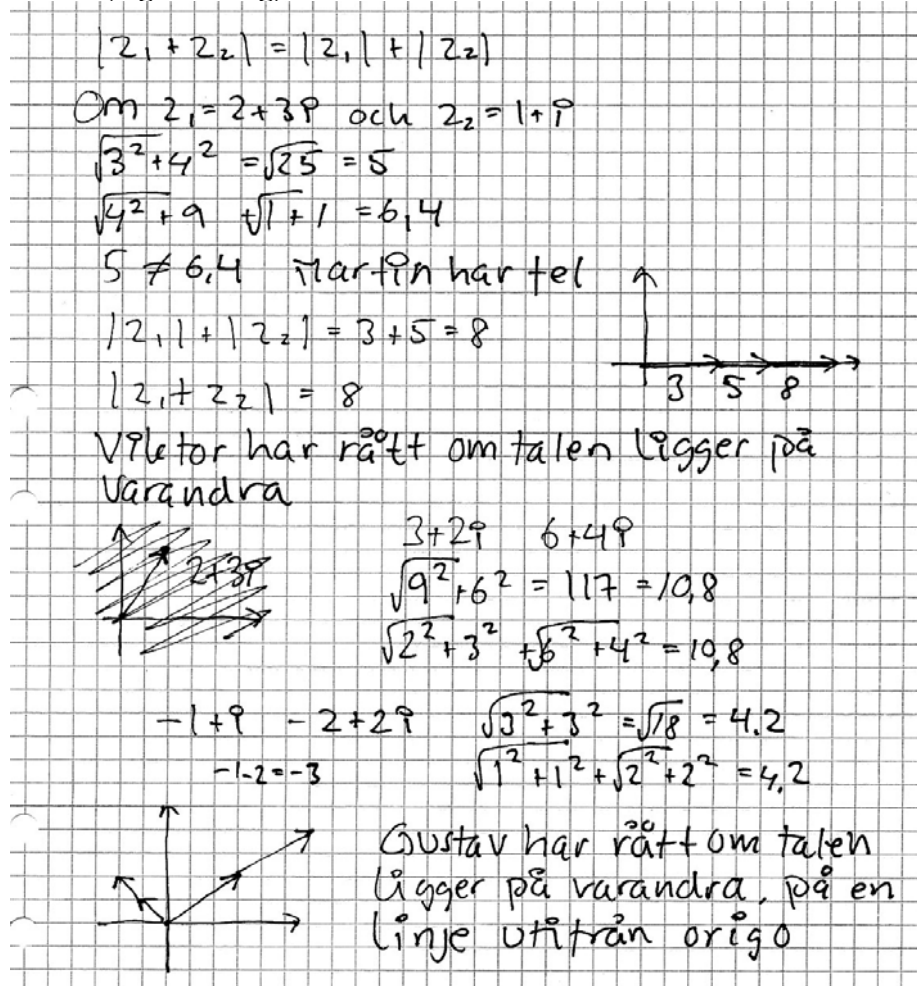 |z₁ + z₂| = |z₁| + |z₂|
Om z₁ = 2+3i och z₂ = 1+i
√3²+4² = √25 = 5
√4²+9 +√1+1 = 6,4
5 ≠ 6,4 Martin har fel
|z₁| + |z₂| = 3+5 = 8
|z₁+ z₂| = 8
3 5 8
Viktor har rätt om talen ligger på
varandra
2+3i
3+2i 6+4i
√9²+6² = 117 = 10,8
√2²+3² +√6²+4² = 10,8
-1+i -2+2i √3²+3² = √18 = 4.2
-1-2=-3 √1²+1² + √2²+2² = 4,2
Gustav har rätt om talen
ligger på varandra, på en
linje utifrån origo